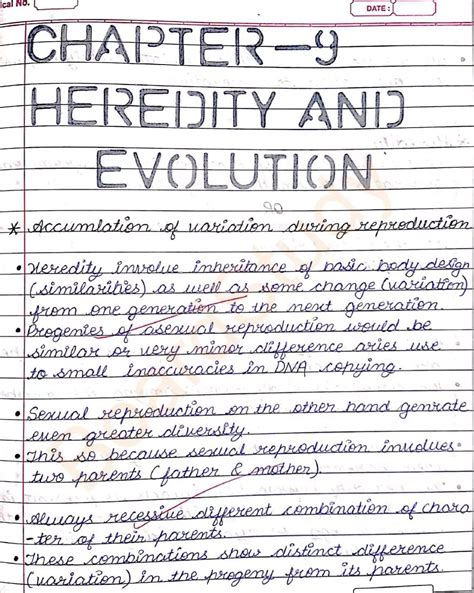 ical No.
DATE :
CHAPTER-9
HEREDITY AND
EVOLUTION
* Accumlation of variation during reproduction
• Heredity involve inheritance of basic body design
(similarities) as well as some change (variation)
from one generation to the next generation.
• Progenies of asexual reproduction would be
similar or very minor difference aries use
to small inaccuracies in DNA copying.
• Sexual reproduction on the other hand genrate
even greater diversity.
• This so because sexual reproduction involves
two parents (father & mother).
• Always recessive different combination of chara
-ter of their parents.
• These combinations show distinct difference
(variation) in the progeny from its parents.